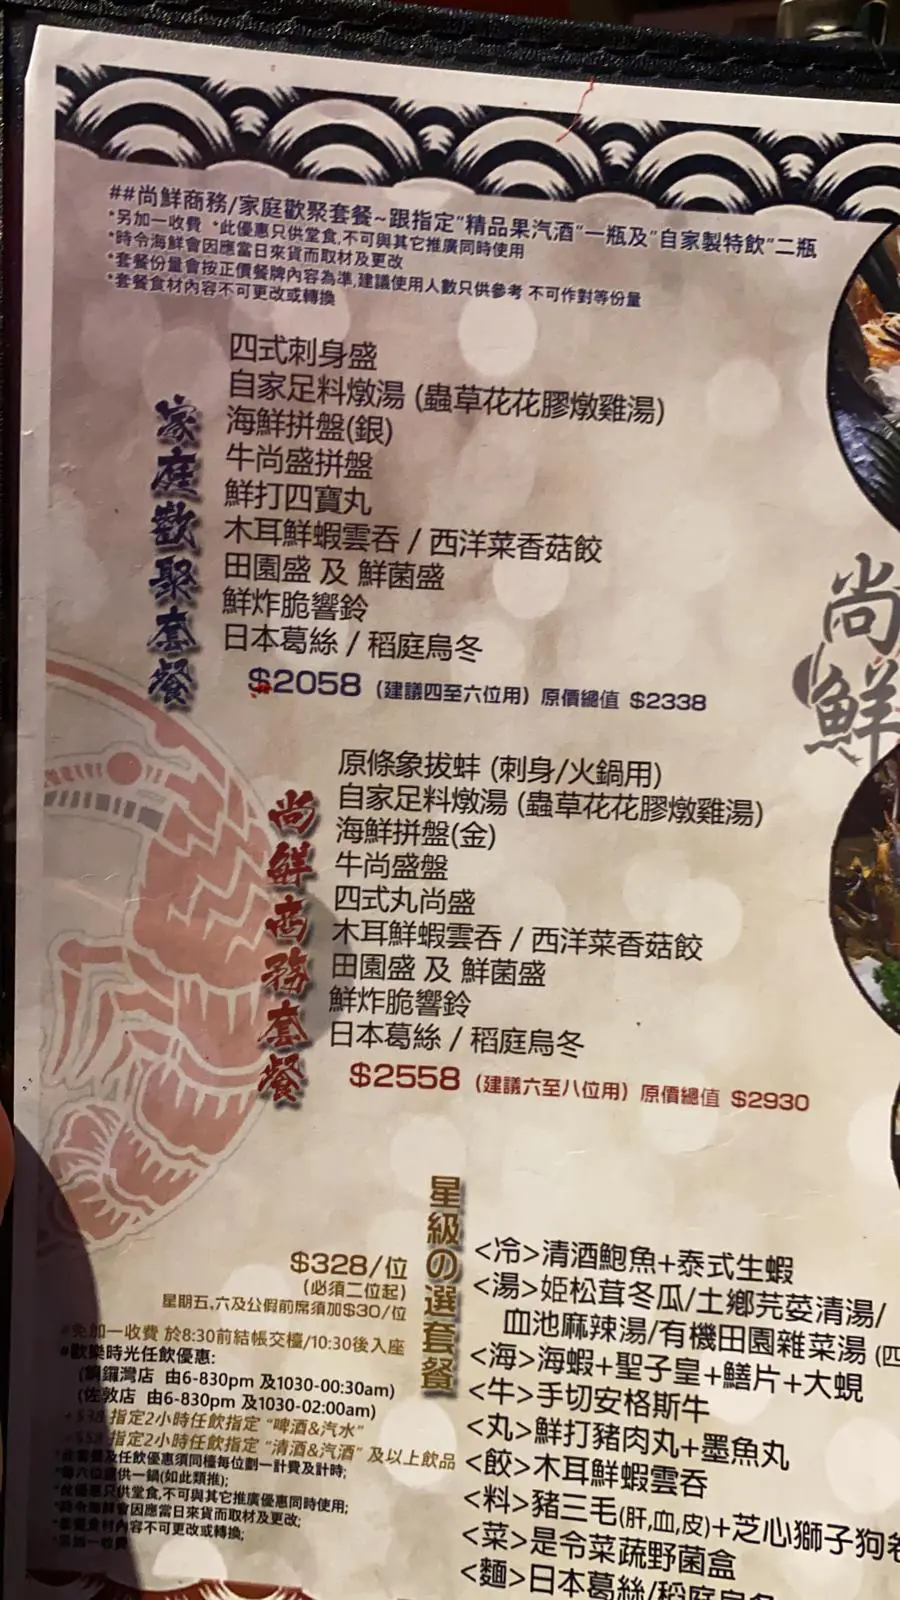 ##尚鮮商務/家庭歡聚套餐~跟指定"精品果汽酒"一瓶及"自家製特飲"二瓶
*另加一收費 *此優惠只供堂食,不可與其它推廣同時使用
*時令海鮮會因應當日來貨而取材及更改
*套餐份量會按正價餐牌內容為準,建議使用人數只供參考 不可作對等份量
*套餐食材內容不可更改或轉換
家庭歡聚套餐
四式刺身盛
自家足料燉湯 (蟲草花花膠燉雞湯)
海鮮拼盤(銀)
牛尚盛拼盤
鮮打四寶丸
木耳鮮蝦雲吞 / 西洋菜香菇餃
田園盛 及 鮮菌盛
鮮炸脆響鈴
日本葛絲 / 稻庭烏冬
$2058 (建議四至六位用) 原價總值 $2338
尚鮮
尚鮮商務套餐
原條象拔蚌 (刺身/火鍋用)
自家足料燉湯 (蟲草花花膠燉雞湯)
海鮮拼盤(金)
牛尚盛盤
四式丸尚盛
木耳鮮蝦雲吞 / 西洋菜香菇餃
田園盛 及 鮮菌盛
鮮炸脆響鈴
日本葛絲 / 稻庭烏冬
$2558 (建議六至八位用) 原價總值 $2930
星級の選套餐
$328/位
(必須二位起)
星期五,六及公假前席須加$30/位
#免加一收費 於8:30前結帳交檯/10:30後入座
#歡樂時光任飲優惠:
(銅鑼灣店 由6-830pm 及1030-00:30am)
(佐敦店 由6-830pm 及1030-02:00am)
+$38 指定2小時任飲指定 "啤酒&汽水"
+$58 指定2小時任飲指定 "清酒&汽酒" 及以上飲品
*此套餐及任飲優惠須同檯每位劃一計費及計時;
*每六位提供一鍋(如此類推);
*此優惠只供堂食,不可與其它推廣優惠同時使用;
*時令海鮮會因應當日來貨而取材及更改;
*套餐食材內容不可更改或轉換;
*另加一收費
<冷>清酒鮑魚+泰式生蝦
<湯>姬松茸冬瓜/土鄉芫荽清湯/
血池麻辣湯/有機田園雜菜湯 (四
<海>海蝦+聖子皇+鱔片+大蜆
<牛>手切安格斯牛
<丸>鮮打豬肉丸+墨魚丸
<餃>木耳鮮蝦雲吞
<料>豬三毛(肝,血,皮)+芝心獅子狗卷
<菜>是令菜蔬野菌盒
<麵>日本葛絲/稻庭烏冬